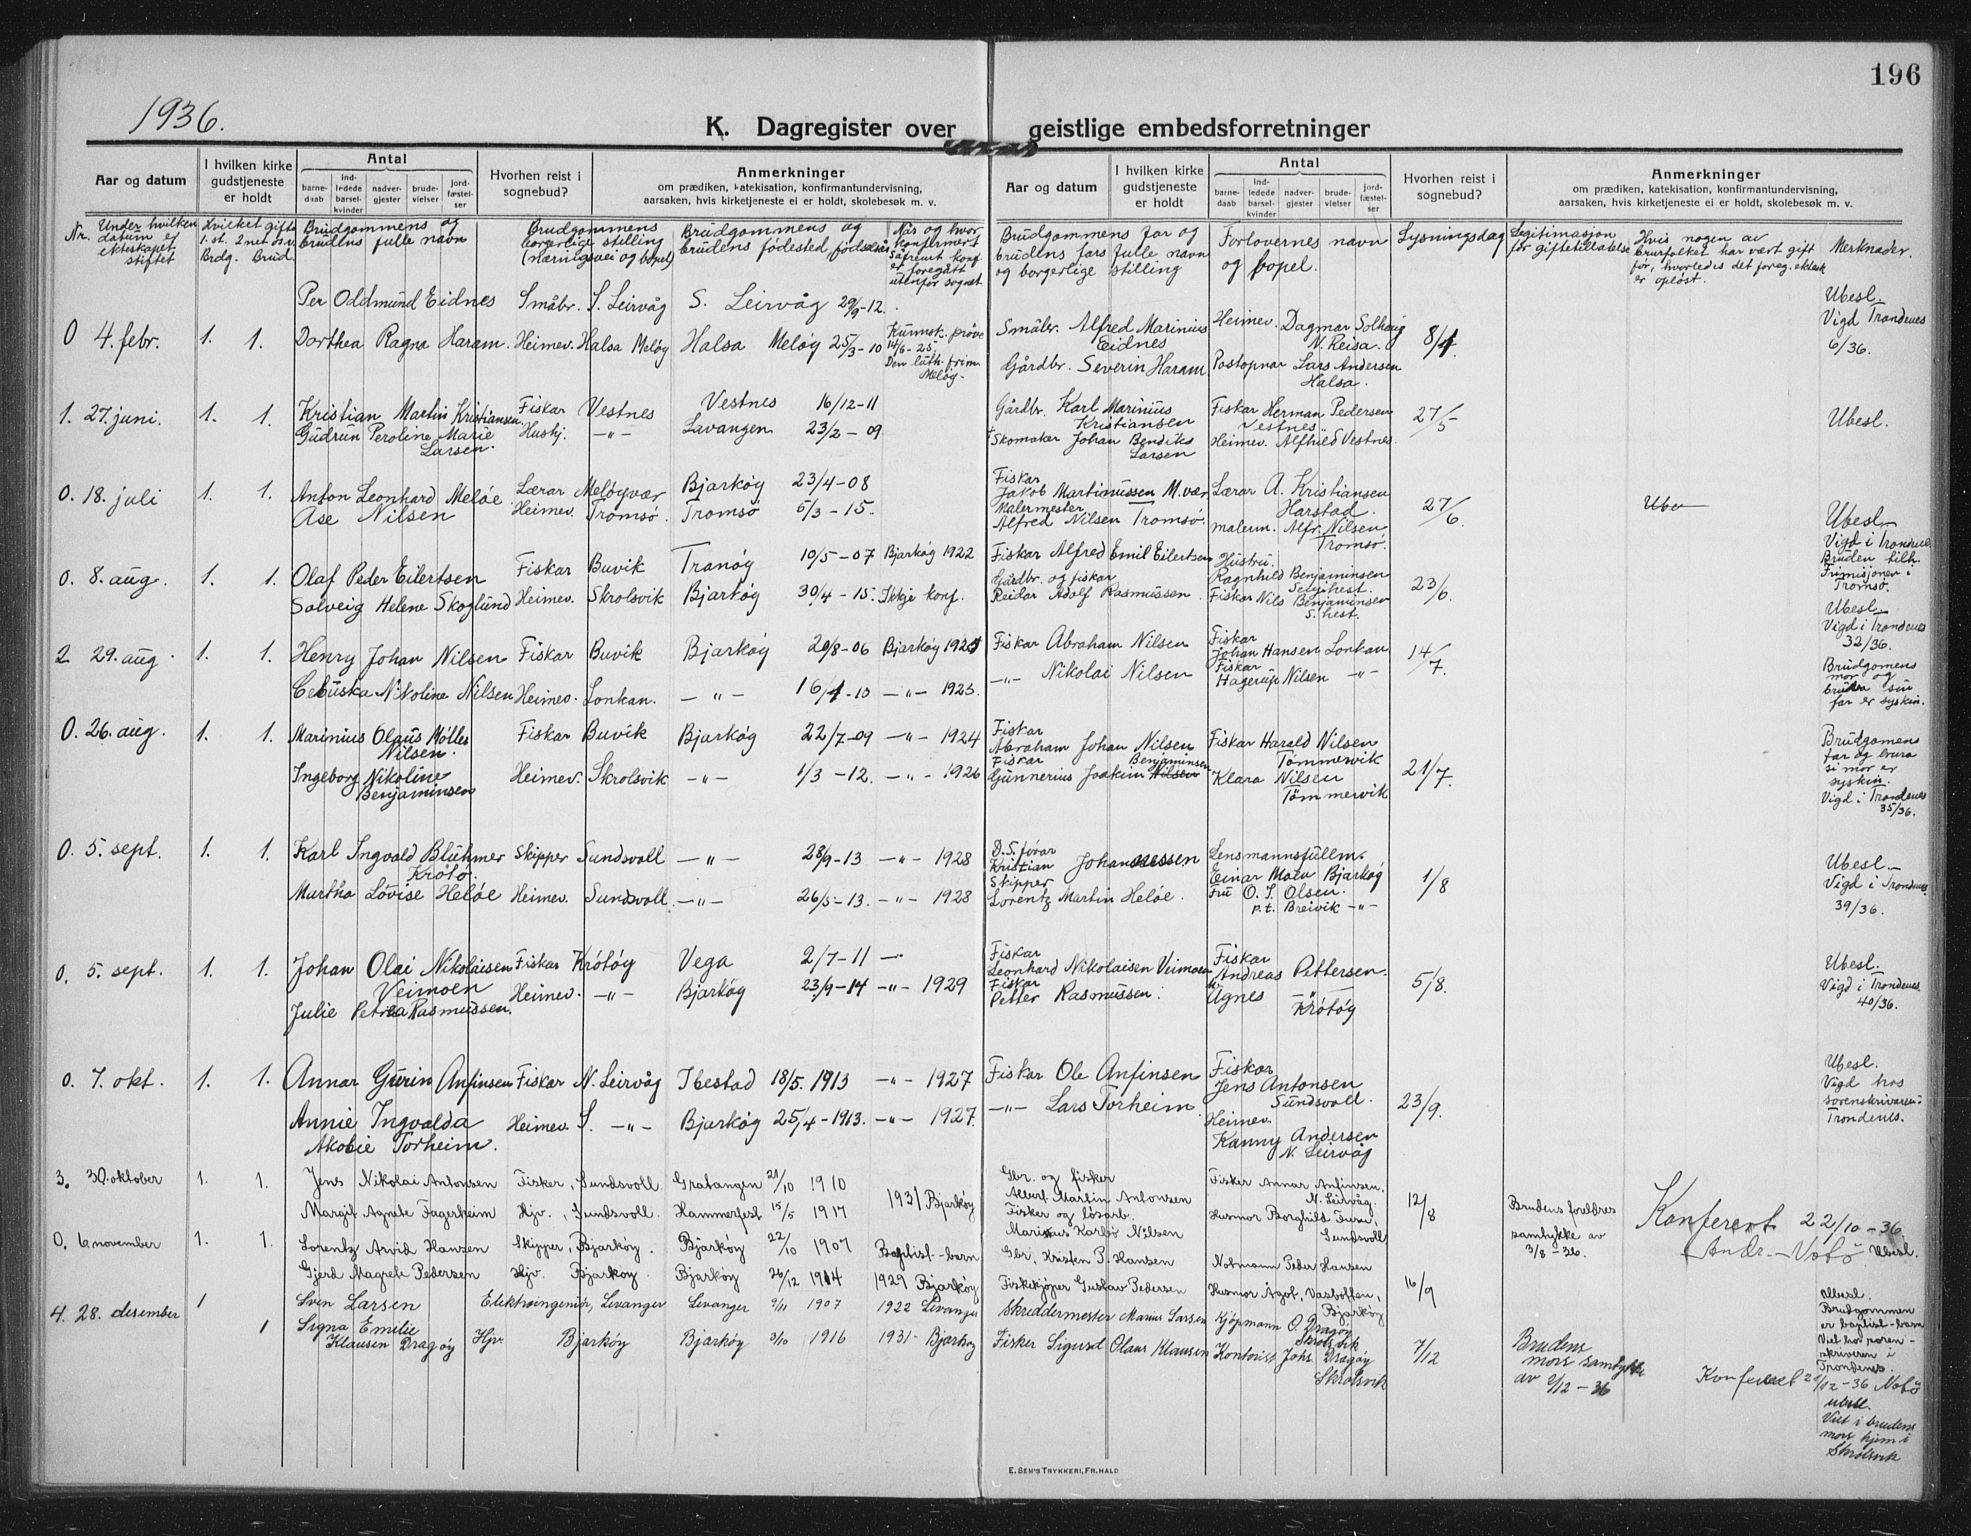 196
1936.
K. Dagregister over geistlige embedsforretninger
Aar og datum
I hvilken kirke gudstjeneste er holdt
Antal
barne-daab
ind-ledede barsel-kvinder
nadver-gjester
brude-vielser
jord-fæstel-ser
Hvorhen reist i sognebud?
Anmerkninger
om prædiken, katekisation, konfirmantundervisning,
aarsaken, hvis kirketjeneste ei er holdt, skolebesøk m. v.
Aar og datum
I hvilken kirke gudstjeneste er holdt
Antal
barne-daab
ind-ledede barsel-kvinder
nadver-gjester
brude-vielser
jord-fæstel-ser
Hvorhen reist i sognebud?
Anmerkninger
om prædiken, katekisation, konfirmantundervisning,
aarsaken, hvis kirketjeneste ei er holdt, skolebesøk m. v.
Nr. Under hvilken datum er ekteskapet stiftet
Brdg. Brud.
Brudgommens og brudens fulle navn
Brudgommens borgerlige stilling (næringsvei og bopel)
Brudgommens og brudens fødested, fødselsår
Når og hvor konfirmert. Såfremt konf. er foregått utenfor sognet
Brudgommens far og brudens fars fulle navn og borgerlige stilling
Forlovernes navn og bopel.
Lysningsdag
Legitimasjon for giftetillatelse
Hvis nogen av brurfolket har vært gift før, hvorledes det foreg. ektesk. er opløst.
Merknader.
Per Oddmund Eidnes Småbr. S. Leirvåg S. Leirvåg 29/9-12. Småbr. Alfred Marinius Eidnes Heimev. Dagmar Solhaug N. Reisa. Ubesl. Vigd Trondenes 6/36.
0 4. febr. 1. 1. Dorthea Ragna Haram. Heimev. Halsa Meløy Halsa Meløy 25/3-10 Kunnsk. prøve 14/6-25. Den luth. frim. Meløy. Gårdbr. Severin Haram Postopnar Lars Andersen Halsa. 8/1.
1. 27. juni. 1. 1. Kristian Martin Kristiansen. Fiskar Vestnes Vestnes 16/12-11 Gårdbr. Karl Marinius Kristiansen Fiskar Herman Pedersen Vestnes 27/5 Ubesl.
Gudrun Peroline Marie Larsen. Hushj. -"- Lavangen 23/2-09 Skomaker Johan Bendiks Larsen Heimev. Alfhild Vestnes.
0. 18. juli 1. 1. Anton Leonhard Meløe Lærar Meløyvær Bjarkøy 23/4-08 Fiskar Jakob Martinussen M.vær Lærar A. Kristiansen Harstad. 27/6. Ube
Åse Nilsen Heimev. Tromsø. Tromsø 5/3-15. Malermester Alfred Nilsen Tromsø. malerm. Alfr. Nilsen Tromsø. Ubesl. Vigd i Trondenes Bruden tilh. Frimisjonen i Tromsø.
0. 8. aug. 1. 1. Olaf Peder Eilertsen Fiskar Buvik Tranøy 10/5-07 Bjarkøy 1922 Fiskar Alfred Emil Eilertsen Hustru. Ragnhild Benjaminsen Selgihest. 23/6.
Solveig Helene Skoglund Heimev. Skrolsvik Bjarkøy 30/4-15. Ikkje konf. Gårdbr. og fiskar Reidar Adolf Rasmussen. Fiskar Nils Benjaminsen S.hest. Ubesl. Vigd i Trondenes 32/36.
2 29. aug. 1. 1. Henry Johan Nilsen Fiskar Buvik Bjarkøy 20/8-06 Bjarkøy 1921 Fiskar Abraham Nilsen Fiskar Johan Hansen Lonkan 14/7.
Nikoline Nilsen Heimev. Lonkan. -"- 16/1-10 -"- 1925. -"- Nikolai Nilsen Fiskar Hagerup Nilsen -"- Brudgomens mor og brudsa sin far er syskin.
0. 26. aug. 1. 1. Marinius Olaus Møller Nilsen. Fiskar Buvik Bjarkøy 22/7-09 -"- 1924 Fiskar Abraham Johan Nilsen Fiskar Harald Nilsen Tømmervik 21/7.
Ingeborg Nikoline Benjaminsen Heimev. Skrolsvik -"- 1/3-12. -"- 1926 Fiskar Gunnerius Joakim Benjaminsen Klara Nilsen Tømmervik Brudgomens far og brura si mor er syskin. Vigd i Trondenes 35/36.
0. 5. sept. 1. 1. Karl Ingvald Bluhmer Krøtø. Skipper Sundsvoll -"- 28/9-13 -"- 1928 D.S. førar Kristian Johannessen Lensmannsfullm. Einar Moen Bjarkøy 1/8
Martha Lovise Heløe Heimev. Sundsvoll. -"- 26/5-13. -"- 1928 Skipper Lorentz Martin Heløe. Fru O. S. Olsen. p.t. Breivik -"- Ubesl. Vigd i Trondenes. 39/36.
0. 5. sept. 1. 1. Johan Olai Nikolaisen Veimoen Fiskar Krøtøy Vega 2/7-11 — Fiskar Leonhard Nikolaisen Veimoen Fiskar Andreas Pettersen. 5/8.
Julie Petrea Rasmussen. Heimev. -"- Bjarkøy 23/9-14 -"- 1929 Fiskar Petter Rasmussen. Agnes -"- Krøtøy Ubesl. Vigd i Trondenes. 40/36.
0. 7. okt. 1. 1. Annar Guerin Anfinsen Fiskar N. Leirvåg Ibestad 18/5. 1913 -"- 1927 Fiskar Ole Anfinsen Fiskar Jens Antonsen Sundsvoll. 23/9.
Annie Ingvalda Akobie Torheim. Heimev. S. -"- Bjarkøy 25/4-1913. -"- 1927. -"- Lars Torheim. Heimev. Kanny Andersen N. Leirvåg Ubesl. Vigd hos sorenskrivaren i Trondenes.
3. 30. oktober 1. 1. Jens Nikolai Antonsen Fisker, Sundsvoll. Gratangen 21/10 1910 Gbr. og fisker Albert Martin Antonsen Fisker Annar Anfinsen. N. Leirvåg. 12/8
Margit Agnete Fagerheim Hjv., Sundsvoll. Hammerfest 15/5 1917 1931 Bjarkøy Fisker og løsarb. Marius Karlsø Nilsen Husmor Borghild Furu, Sundsvoll Brudens foreldres samtykke av 3/8-36. Konferert 22/10-36 Andr. Votø Ubesl.
0. 6 november 1. 1. Lorentz Arvid Hansen Skipper, Bjarkøy. Bjarkøy 22/10 1907 Baptist-barn Gbr. Kristen P. Hansen Notmann Peder Hansen
Gjerd Magrete Pedersen Hjv. Bjarkøy. Bjarkøy 26/12 1914 1929 Bjarkøy Fiskekjøper Gustav Pedersen Husmor Ågot Vasbotten, Bjarkøy 16/9 Ubesl. Brudgommen er baptist-barn Viet hos soren-skriveren i Trondenes.
4. 28. desember 1 Sven Larsen Elektroingeniør, Levanger Levanger 9/11 1907 1922 Levanger Skreddermester Marius Larsen Kjøpmann O. Dragøy Skrolsvik
1 Signa Emilie Klausen Dragøy Hjv. Bjarkøy Bjarkøy 3/10 1916 1931 Bjarkøy Fisker Sigurd Olaus Klausen Kontorist Johs. Dragøy Skrolsvik 7/12 Brudens mors samtykke av 2/12-36 Konferert 21/12-36 Votø Ubesl. Viet i brudens mors hjem i Skrolsvik
E. SEM'S TRYKKERI, FR. HALD